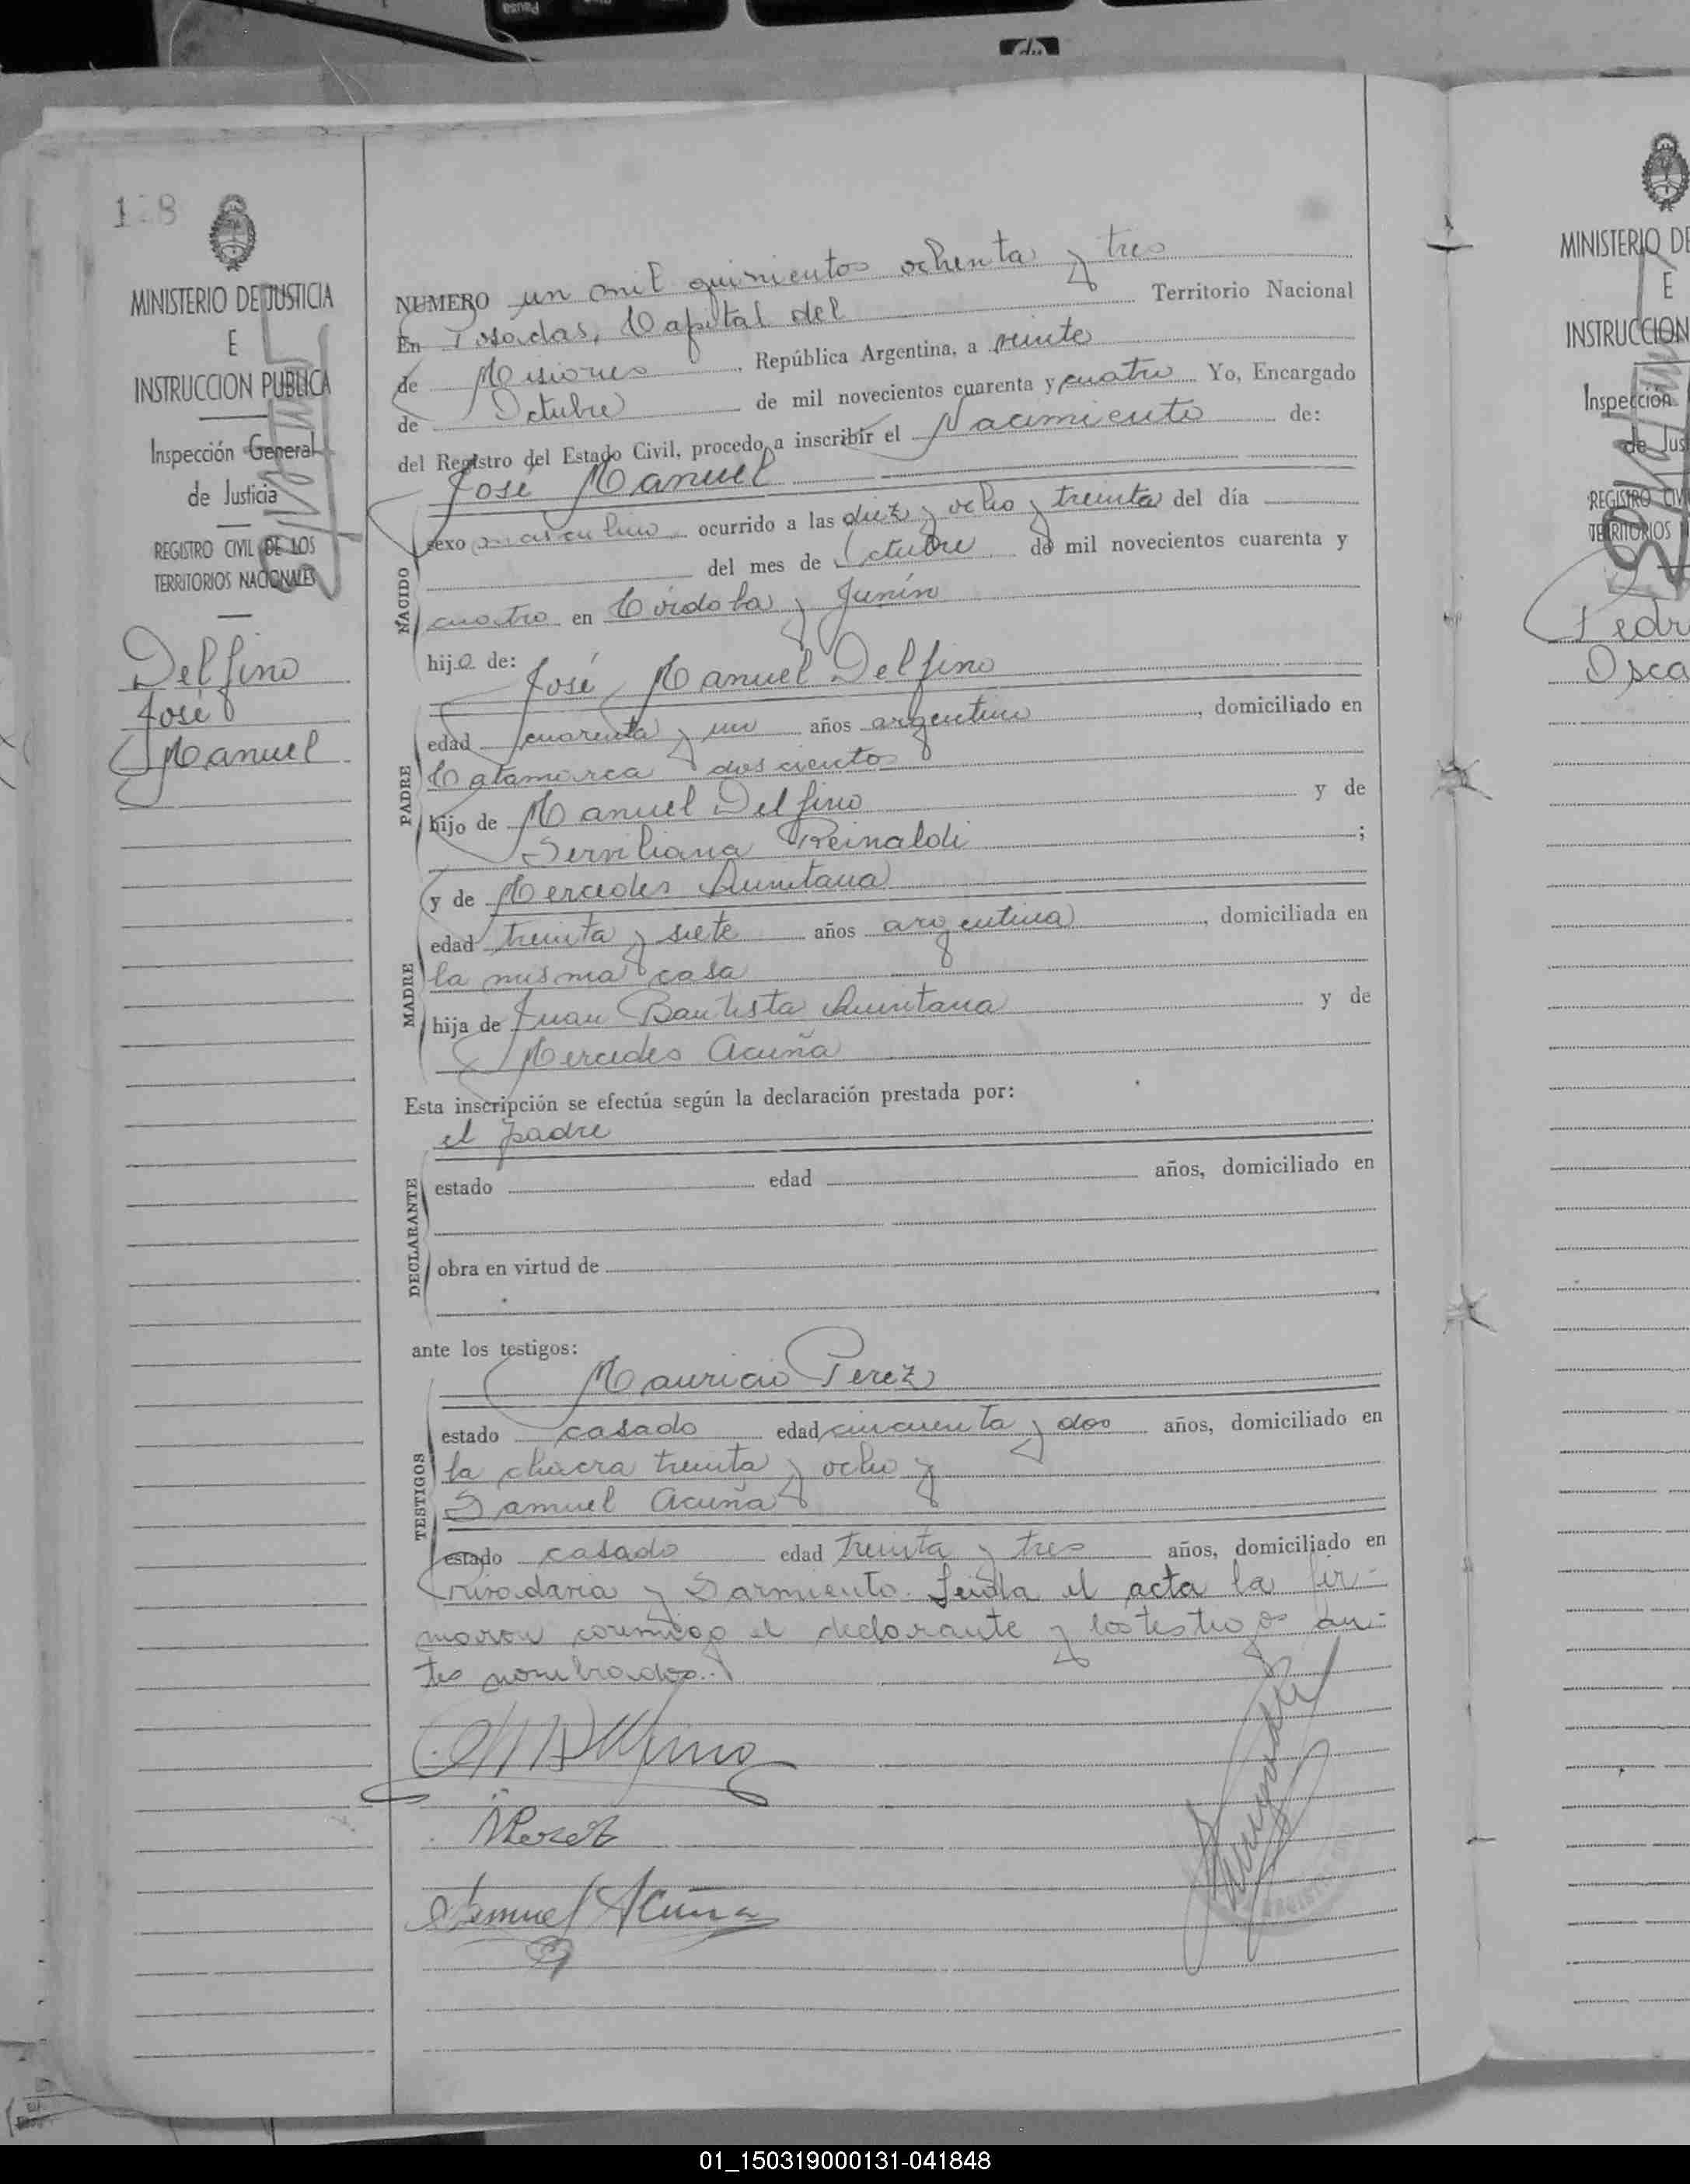 Pausa
hp
128
MINISTERIO DE JUSTICIA
E
INSTRUCCION PUBLICA
Inspección General
de Justicia
REGISTRO CIVIL DE LOS
TERRITORIOS NACIONALES
Delfino
José
Manuel
NUMERO un mil quinientos ochenta y tres
En Posadas, Capital del Territorio Nacional
de Misiones, República Argentina, a veinte
de Octubre de mil novecientos cuarenta y cuatro Yo, Encargado
del Registro del Estado Civil, procedo a inscribir el Nacimiento de:
José Manuel
NACIDO
sexo masculino ocurrido a las diez y ocho y treinta del día
del mes de Octubre de mil novecientos cuarenta y
cuatro en Córdoba y Junín
hijo de:
José Manuel Delfino
PADRE
edad cuarenta y un años argentino, domiciliado en
Catamarca doscientos
hijo de Manuel Delfino y de
Serviliana Reinaldi;
y de Mercedes Quintana
MADRE
edad treinta y siete años argentina, domiciliada en
la misma casa
hija de Juan Bautista Quintana y de
Mercedes Acuña
Esta inscripción se efectúa según la declaración prestada por:
el padre
DECLARANTE
estado edad años, domiciliado en
obra en virtud de
ante los testigos:
Mauricio Perez
TESTIGOS
estado casado edad cincuenta y dos años, domiciliado en
la chacra treinta y ocho y
Samuel Acuña
estado casado edad treinta y tres años, domiciliado en
Rivadavia y Sarmiento. Leída el acta la fir-
maron conmigo el declarante y los testigos an-
tes nombrados.
JMDelfino
MPerez
Samuel Acuña
MINISTERIO DE
E
INSTRUCCION
Inspección
de Jus
REGISTRO CIV
TERRITORIOS N
Pedr
Osca
01_150319000131-041848